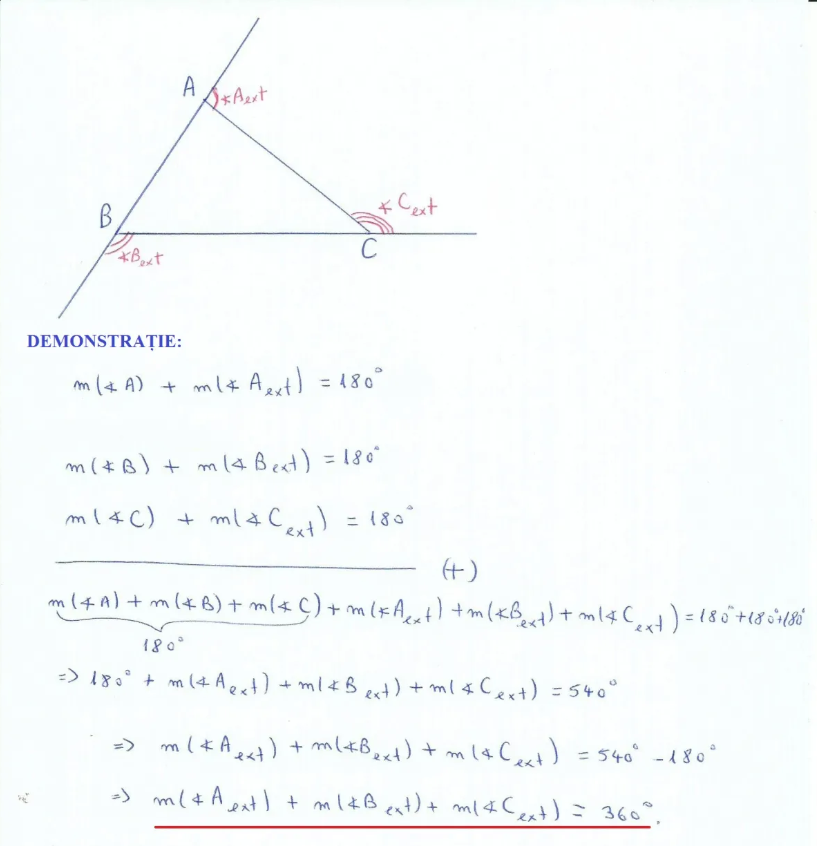 A
∢A ext
B
∢ C ext
C
∢B ext
DEMONSTRAȚIE:
m(∢ A) + m(∢ A ext) = 180°
m(∢ B) + m(∢ B ext) = 180°
m(∢ C) + m(∢ C ext) = 180°
(+)
m(∢ A) + m(∢ B) + m(∢ C) + m(∢ A ext) + m(∢ B ext) + m(∢ C ext) = 180° + 180° + 180°
180°
=> 180° + m(∢ A ext) + m(∢ B ext) + m(∢ C ext) = 540°
=> m(∢ A ext) + m(∢ B ext) + m(∢ C ext) = 540° - 180°
=> m(∢ A ext) + m(∢ B ext) + m(∢ C ext) = 360°.